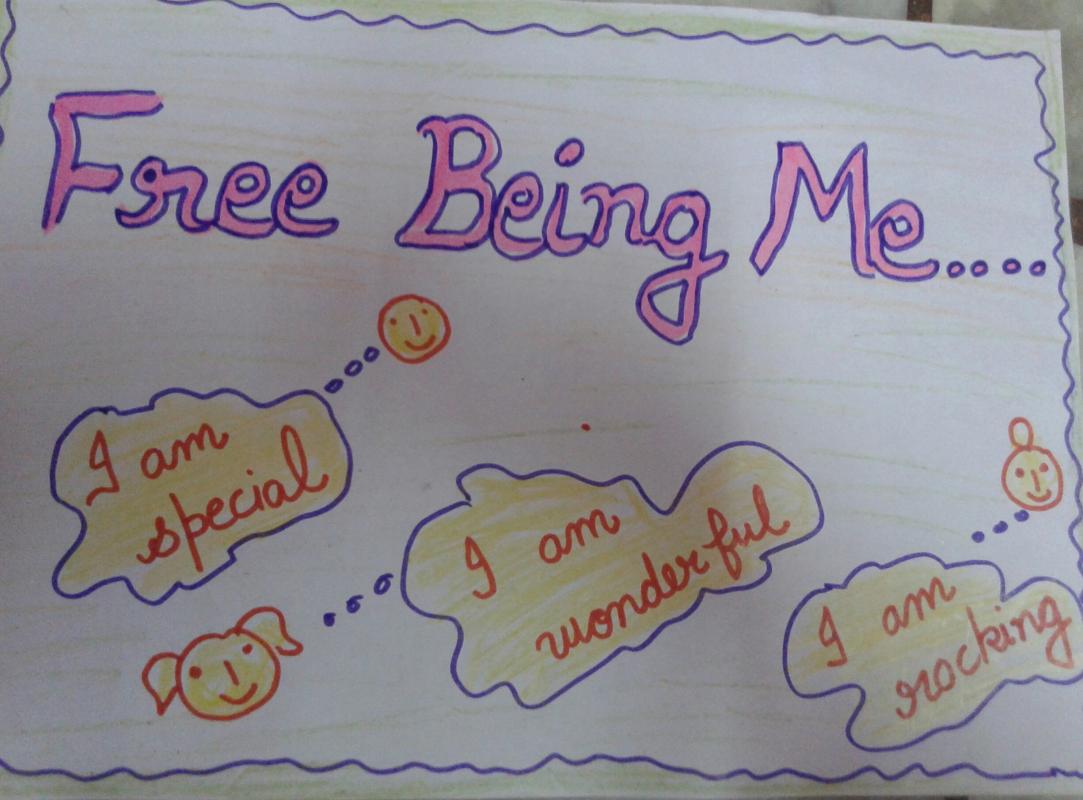 Free Being Me....
I am
special
I am
wonderful
I am
rocking